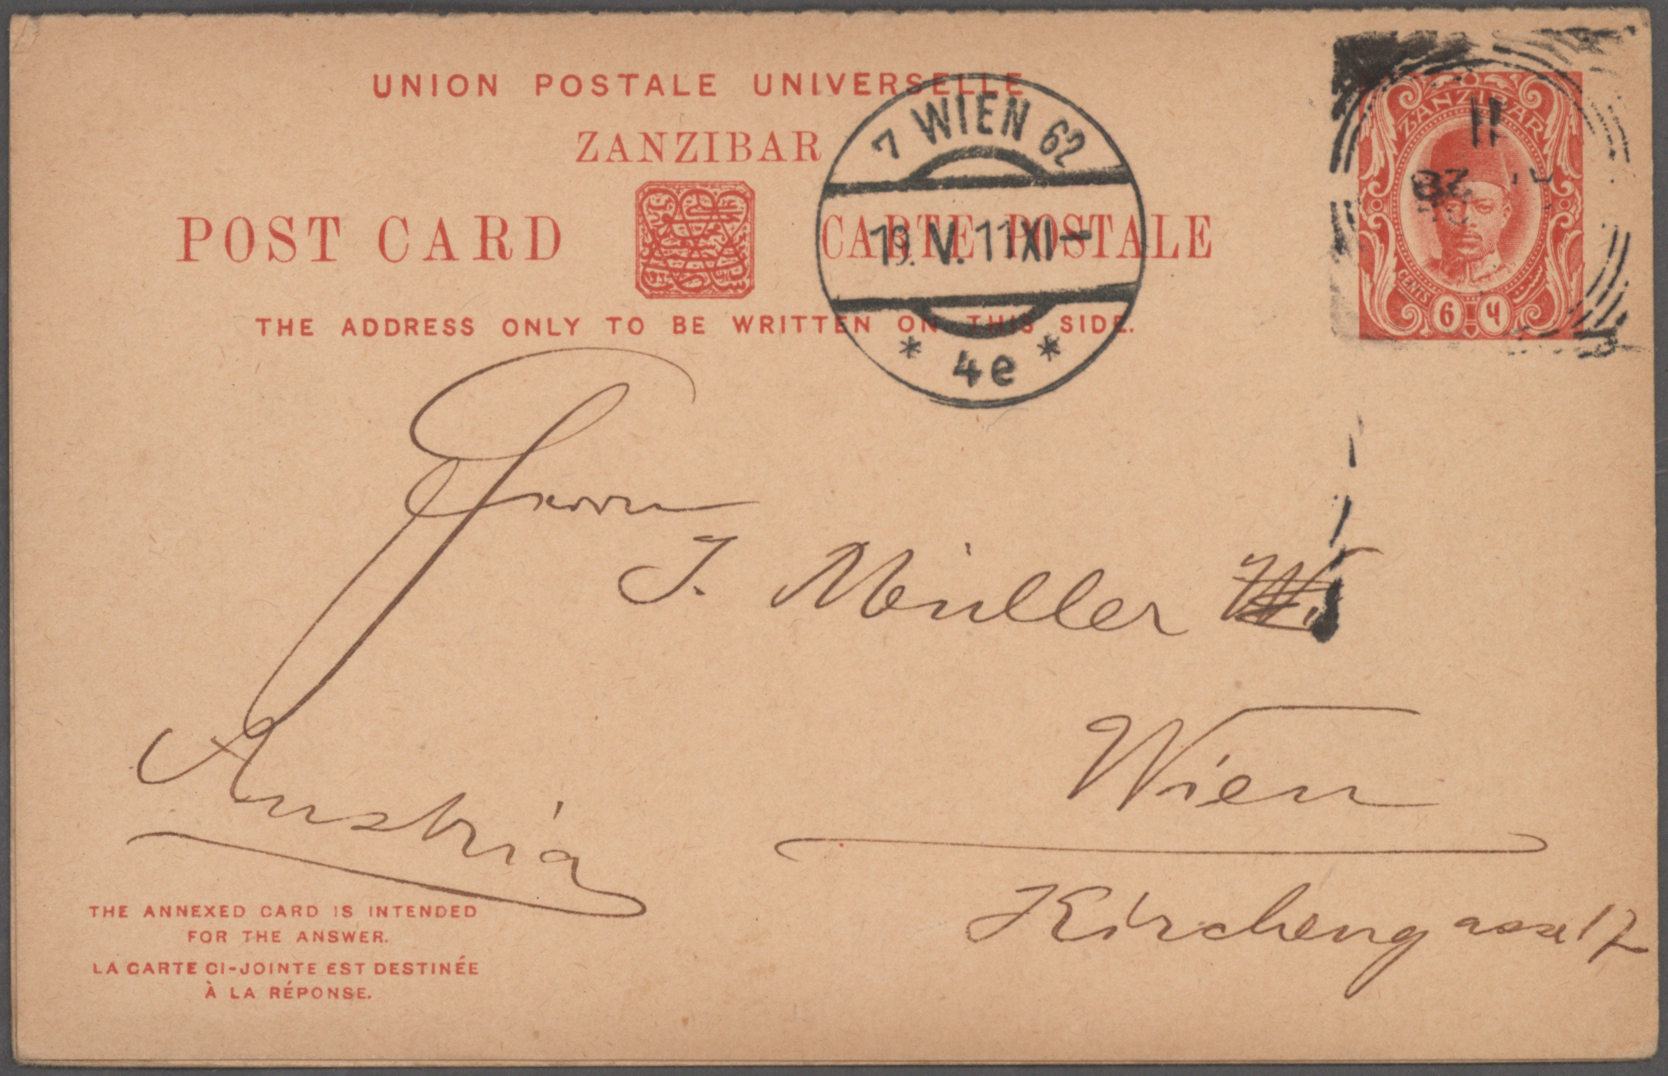 UNION POSTALE UNIVERSELLE
ZANZIBAR
POST CARD CARTE POSTALE
THE ADDRESS ONLY TO BE WRITTEN ON THIS SIDE.
7 WIEN 62
19. V. 11 XI–
* 4e *
ZANZIBAR
CENTS 6 ٦
11
28
Herrn
J. Müller
Wien
Kirchengasse 17
Austria
THE ANNEXED CARD IS INTENDED
FOR THE ANSWER.
LA CARTE CI-JOINTE EST DESTINÉE
À LA RÉPONSE.